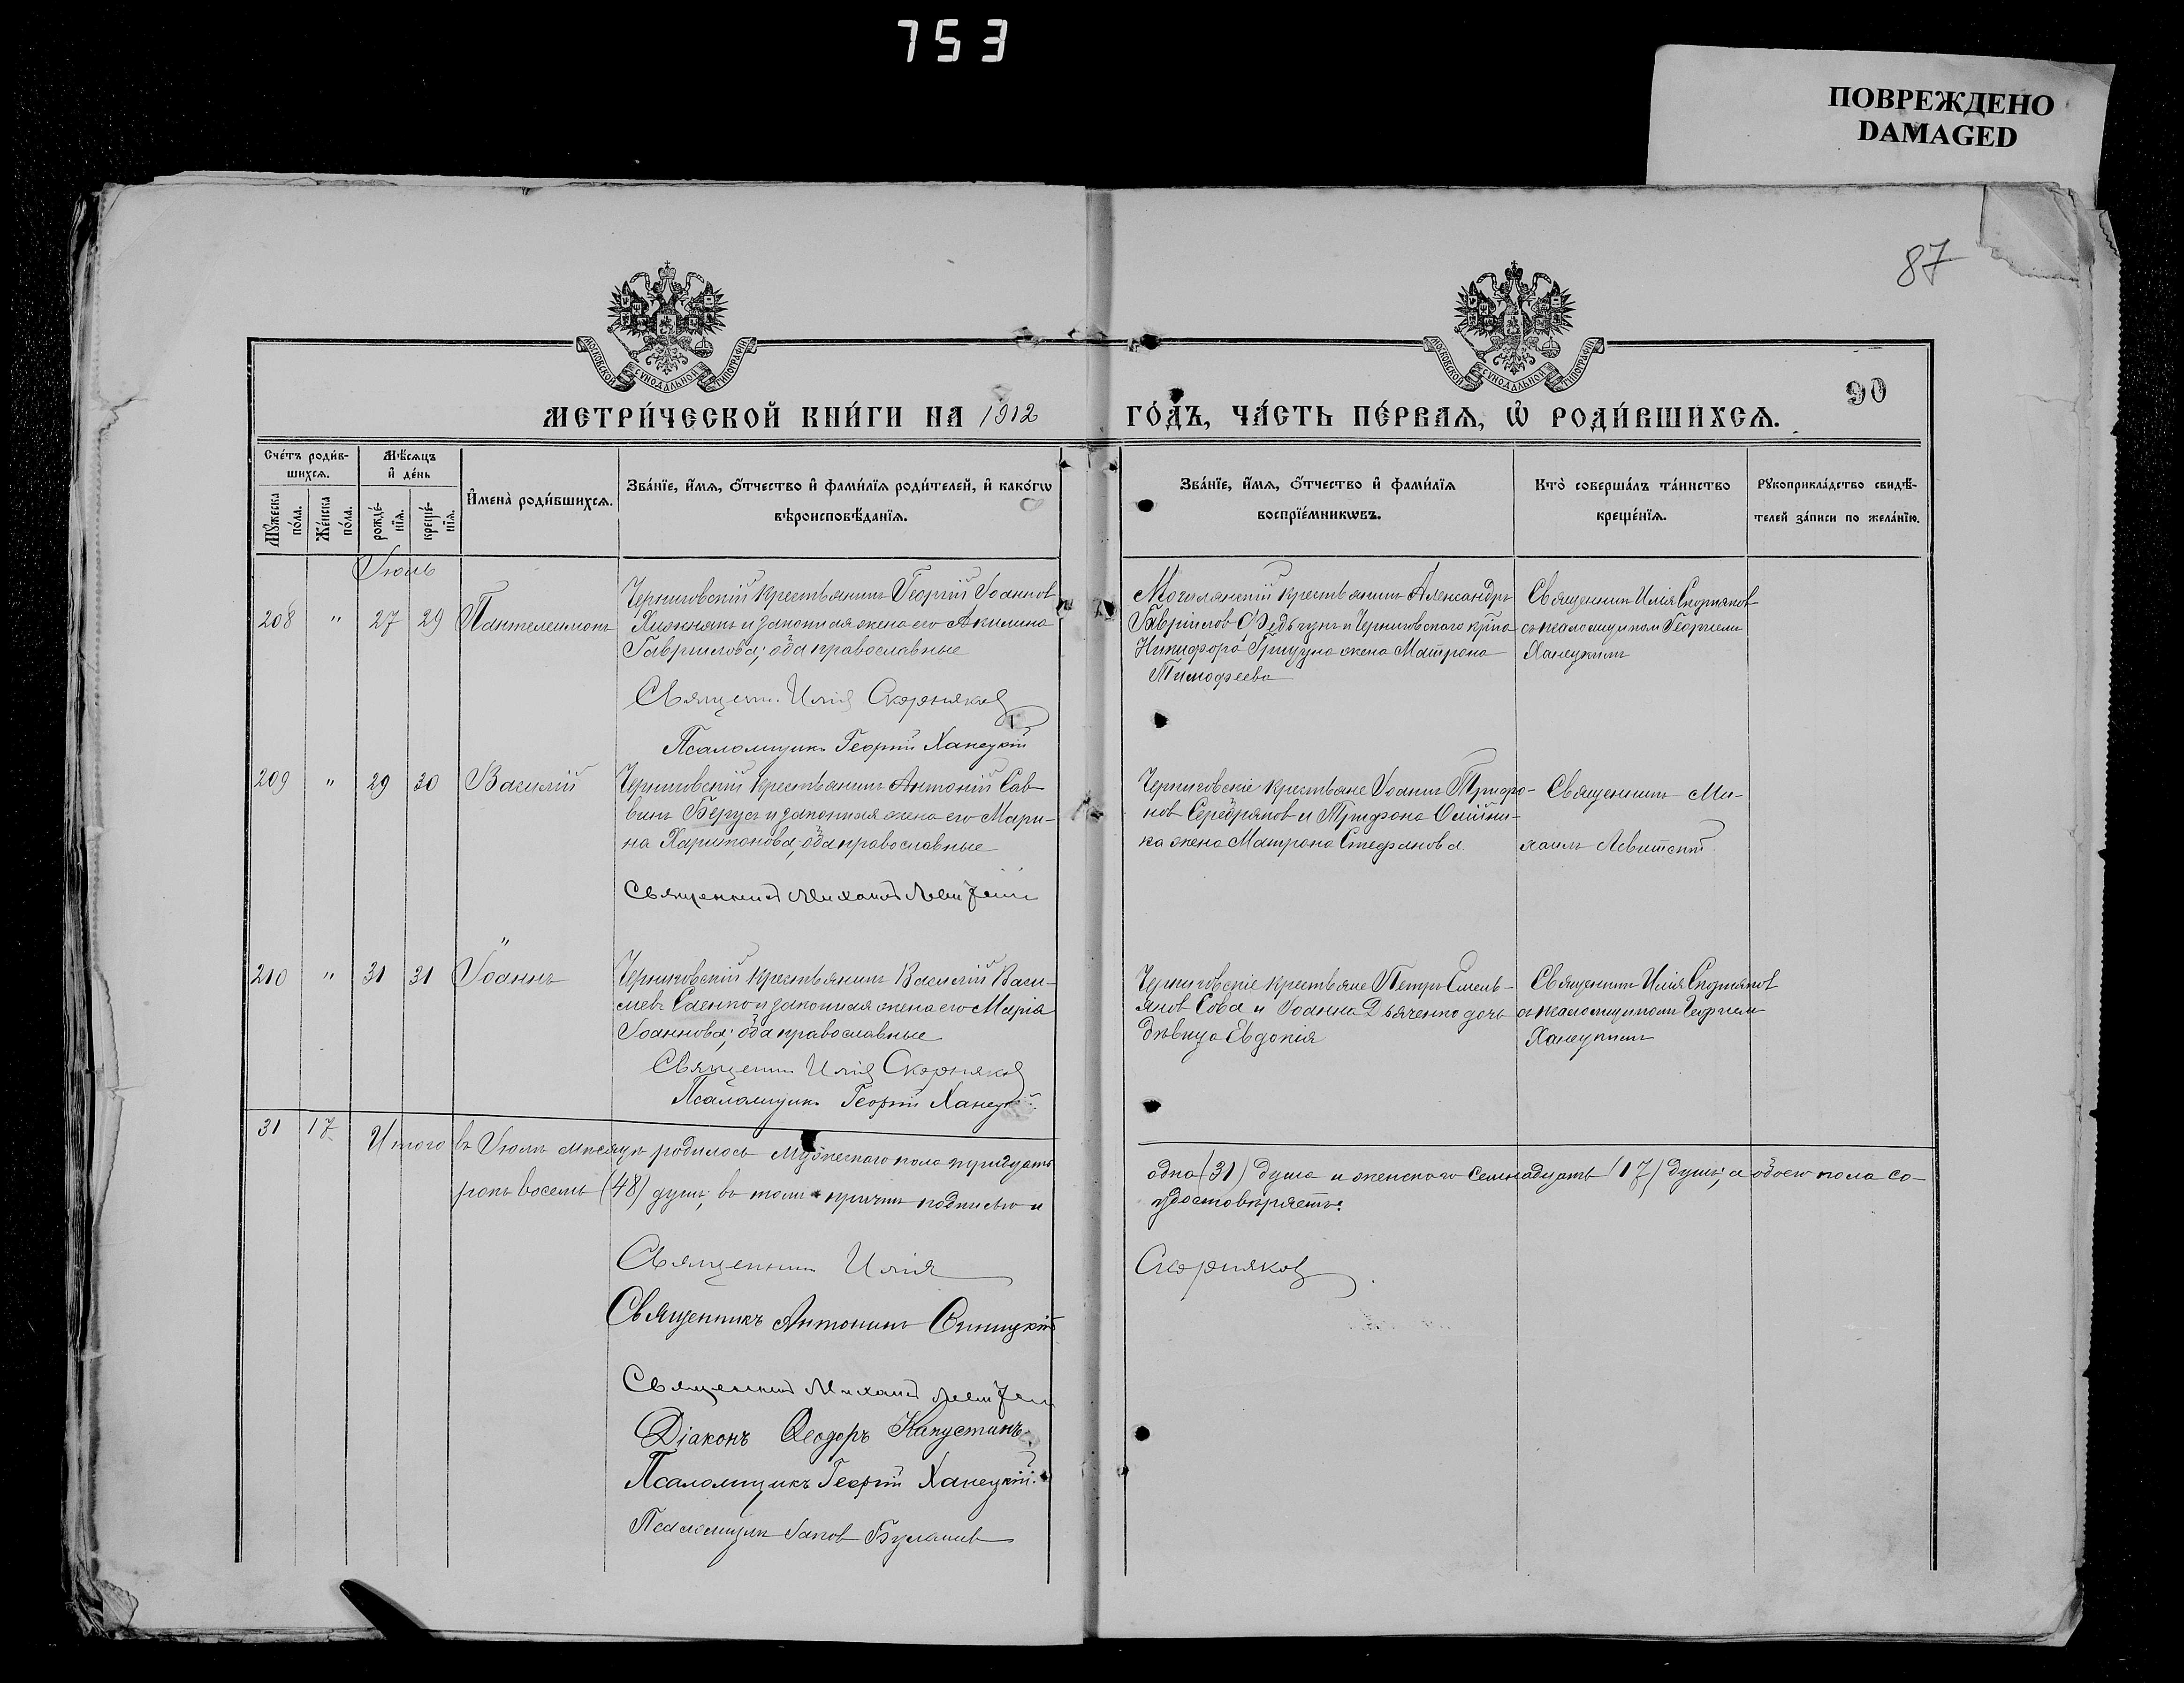 753
ПОВРЕЖДЕНО
DAMAGED
87
90
МОСКОВСКОЙ СѴНОДАЛЬНОЙ ТИПОГРАФІИ
МОСКОВСКОЙ СѴНОДАЛЬНОЙ ТИПОГРАФІИ
МЕТРИ́ЧЕСКОЙ КНИ́ГИ НА 1912 ГО́ДЪ, ЧА́СТЬ ПЕ́РВАѦ, Ѡ҆ РОДИ́ВШИХСѦ.
Сче́тъ роди́в-
шихсѧ.
Мꙋ́жеска по́ла.
Же́нска по́ла.
Мѣ́сѧцъ
и҆ де́нь
рожде́-
нїѧ.
креще́-
нїѧ.
И҆мена̀ роди́вшихсѧ.
Зва́нїе, и҆́мѧ, ѻ҆́тчество и҆ фами́лїѧ роди́телей, и҆ како́гѡ
вѣроисповѣ́данїѧ.
Зва́нїе, и҆́мѧ, ѻ҆́тчество и҆ фами́лїѧ
воспрїе́мникѡвъ.
Кто̀ соверша́лъ та́инство
креще́нїѧ.
Рꙋкоприкла́дство свидѣ́-
телей за́писи по жела́нїю.
Іюль
208 " 27 29 Пантелеимонъ
Черниговскій крестьянинъ Георгій Іоаннов
Хижнякъ и законная жена его Акилина
Гавриилова; оба православные
Священ. Илія Скорняков
Псаломщикъ Георгій Ханецкій
Могилянскій крестьянинъ Александръ
Гавріилов и Черниговского кр-на
Никифора Грицуна жена Матрона
Тимофеева
Священник Илія Скорняков
съ псаломщиком Георгием
Ханецким
209 " 29 30 Василій
Черниговскій крестьянинъ Антоній Сав-
винъ Бегусъ и законная жена его Мари-
на Харитонова; оба православные
Священник Михаил Левитский
Черниговскіе крестьяне Іоаннъ Трифо-
нов Серебряков и Трифона Олійни-
ка жена Матрона Стефанова
Священникъ Ми-
хаилъ Левитский
210 " 31 31 Іоаннъ
Черниговскій крестьянинъ Василій Васи-
льевъ Саенко и законная жена его Марія
Іоаннова; оба православные
Священник Илія Скорняков
Псаломщикъ Георгій Ханецкій.
Черниговскіе крестьяне Петръ Емель-
янов Сова и Іоанна Дьяченко дочь
дѣвица Евдокія
Священник Илія Скорняков
съ псаломщиком Георгием
Ханецким
31 17 Итого въ Іюлѣ мѣсяцѣ родилось мужескаго пола тридцать одна (31) душа и женскаго семнадцать (17) душъ; а обоего пола со-
рокъ восемь (48) душъ; въ томъ причтъ подписью и удостовѣряетъ:
Священник Илія Скорняков
Священникъ Антонинъ Синицкій
Священник Михаил Левитский
Діаконъ Ѳеодоръ Капустинъ.
Псаломщикъ Георгій Ханецкій.
Псаломщик Іаков Булашев